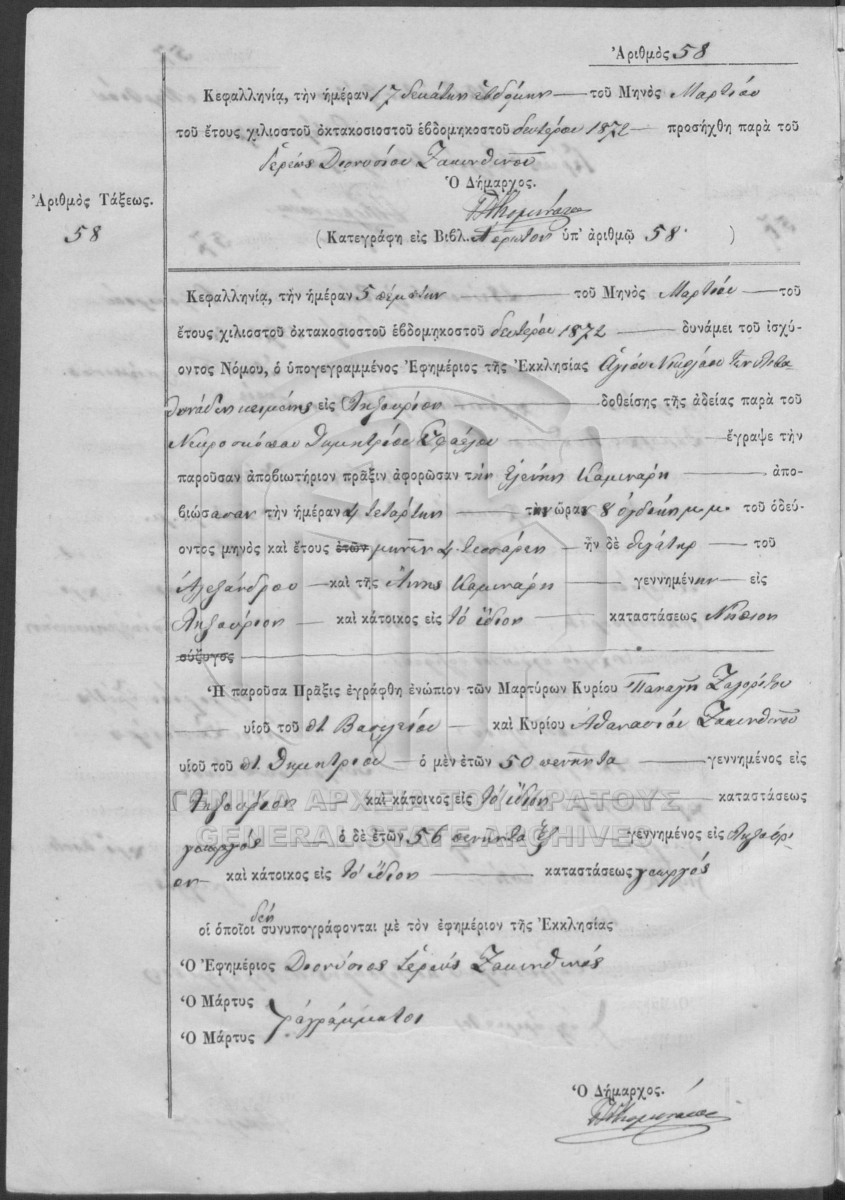 Ἀριθμὸς 58
Κεφαλληνίᾳ, τὴν ἡμέραν 17 δεκάτην ἑβδόμην τοῦ Μηνὸς Μαρτίου
τοῦ ἔτους χιλιοστοῦ ὀκτακοσιοστοῦ ἑβδομηκοστοῦ δευτέρου 1872 προσήχθη παρὰ τοῦ
Ἱερέως Διονυσίου Ζακυνθινοῦ
Ὁ Δήμαρχος.
Ἀριθμὸς Τάξεως.
58
(Κατεγράφη εἰς Βιβλ. πρῶτον ὑπ' ἀριθμῷ 58 )
Κεφαλληνίᾳ, τὴν ἡμέραν 5 πέμπτην τοῦ Μηνὸς Μαρτίου τοῦ
ἔτους χιλιοστοῦ ὀκτακοσιοστοῦ ἑβδομηκοστοῦ δευτέρου 1872 δυνάμει τοῦ ἰσχύ-
οντος Νόμου, ὁ ὑπογεγραμμένος Ἐφημέριος τῆς Ἐκκλησίας Ἁγίου Νικολάου
κειμένης εἰς Ληξούριον δοθείσης τῆς ἀδείας παρὰ τοῦ
Νεκροσκόπου Δημητρίου ἔγραψε τὴν
παροῦσαν ἀποβιωτήριον πρᾶξιν ἀφορῶσαν τὴν Ἑλένην Καμινάρη ἀπο-
βιώσασαν τὴν ἡμέραν 4 τετάρτην τὴν ὥραν 8 ὀγδόην μ.μ. τοῦ ὁδεύ-
οντος μηνὸς καὶ ἔτους ἐτῶν μηνῶν 4 τεσσάρων ἦν δὲ θυγάτηρ τοῦ
Ἀλεξάνδρου καὶ τῆς Ἄννης Καμινάρη γεννημένην εἰς
Ληξούριον καὶ κάτοικος εἰς τὸ ἴδιον καταστάσεως Νήπιον
σύζυγος
Ἡ παροῦσα Πρᾶξις ἐγράφθη ἐνώπιον τῶν Μαρτύρων Κυρίου Παναγῆ Ζαγορίτου
υἱοῦ τοῦ ποτὲ Βασιλείου καὶ Κυρίου Ἀθανασίου Ζακυνθινοῦ
υἱοῦ τοῦ ποτὲ Δημητρίου ὁ μὲν ἐτῶν 50 πενῆντα γεννημένος εἰς
Ληξούριον καὶ κάτοικος εἰς τὸ ἴδιον καταστάσεως
γεωργὸς ὁ δὲ ἐτῶν 56 πενῆντα ἓξ γεννημένος εἰς Ληξούρι-
ον καὶ κάτοικος εἰς τὸ ἴδιον καταστάσεως γεωργός
οἱ ὁποῖοι δὲν συνυπογράφονται μὲ τὸν ἐφημέριον τῆς Ἐκκλησίας
Ὁ Ἐφημέριος Διονύσιος Ἱερεὺς Ζακυνθινός
Ὁ Μάρτυς
ἀγράμματοι
Ὁ Μάρτυς
Ὁ Δήμαρχος.
ΓΕΝΙΚΑ ΑΡΧΕΙΑ ΤΟΥ ΚΡΑΤΟΥΣ
GENERAL STATE ARCHIVES